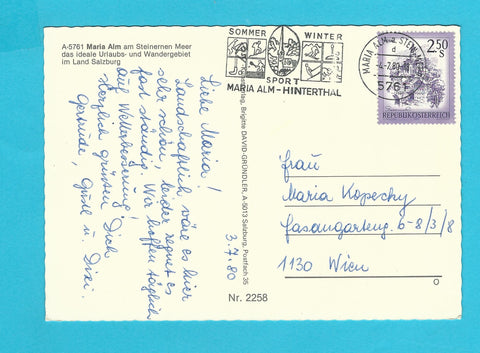 A-5761 Maria Alm am Steinernen Meer
das ideale Urlaubs- und Wandergebiet
im Land Salzburg
SOMMER WINTER
SPORT
MARIA ALM - HINTERTHAL
MARIA ALM a. STEIN
d
-4.-7.80
5761
2.50
S
REPUBLIK ÖSTERREICH
Liebe Maria!
Landschaftlich wäre es hier
sehr schön, leider regnet es
fast ständig. Wir hoffen täglich
auf Wetterbesserung!
Herzlich grüssen Dich
Gertrude, Gustl u. Dixi.
3.7.80
Brigitte DAVID-GRÜNDLER, A-5013 Salzburg, Postfach 35
Nr. 2258
Frau
Maria Kopecky
Fasangarteng. 6-8/3/8
1130 Wien